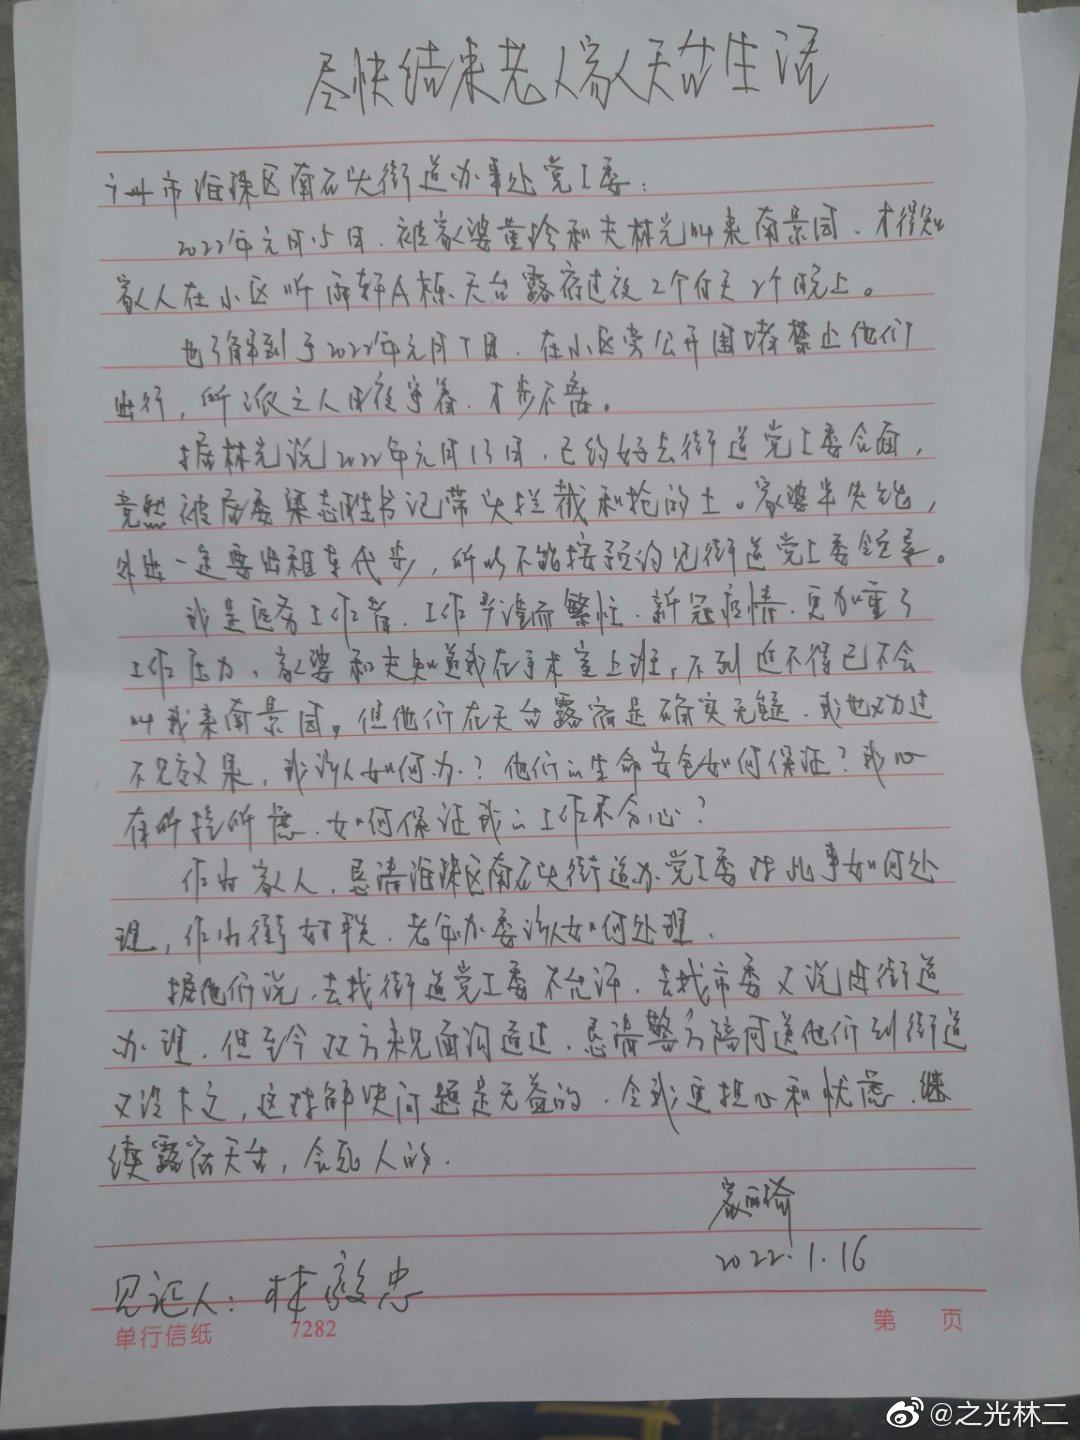 尽快结束老人家人天台生活
广州市海珠区南石头街道办事处党工委：
2022年元月15日，被家婆董珍和夫林光叫来南景园，才得知
家人在小区听雨轩A栋天台露宿过夜2个白天2个晚上。
也了解到于2022年元月7日，在小区旁公开围堵禁止他们
出行，所派之人日夜守着，寸步不离。
据林光说2022年元月13日，已约好去街道党工委会面，
竟然被居委梁志胜书记带头拦截和抢的士。家婆半失能，
外出一定要出租车代步，所以不能按预约见街道党工委领导。
我是医务工作者，工作严谨而繁忙，新冠疫情，更加重了
工作压力，家婆和夫知道我在手术室上班，不到迫不得已不会
叫我来南景园，但他们在天台露宿是确实无疑，我也劝过
不见效果，我该如何办？他们的生命安全如何保证？我心
有所挂所虑，如何保证我的工作不分心？
作为家人，恳请海珠区南石头街道办党工委对此事如何处
理，作为街妇联、老年办委该如何处理，
据他们说，去找街道党工委不允许，去找市委又说由街道
办理，但至今双方未见面沟通过，恳请警方陪同送他们到街道
又没下文，这对解决问题是无益的，令我更担心和忧虑，继
续露宿天台，会死人的，
2022.1.16
见证人：林毅忠
单行信纸 7282 第 页
@之光林二